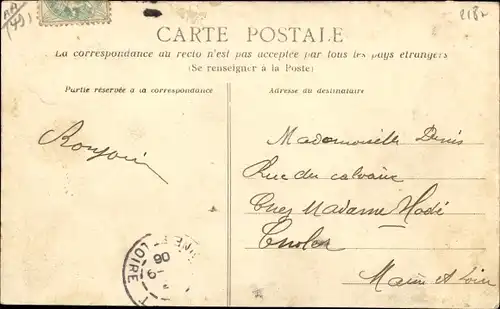 2182
CARTE POSTALE
La correspondance au recto n'est pas acceptée par tous les pays étrangers
(Se renseigner à la Poste)
Partie réservée à la correspondance
Adresse du destinataire
Bonjour
Mademoiselle Denis
Rue du calvaire
Chez Madame Hodé
Cholet
Maine et Loire
LOIRE
06